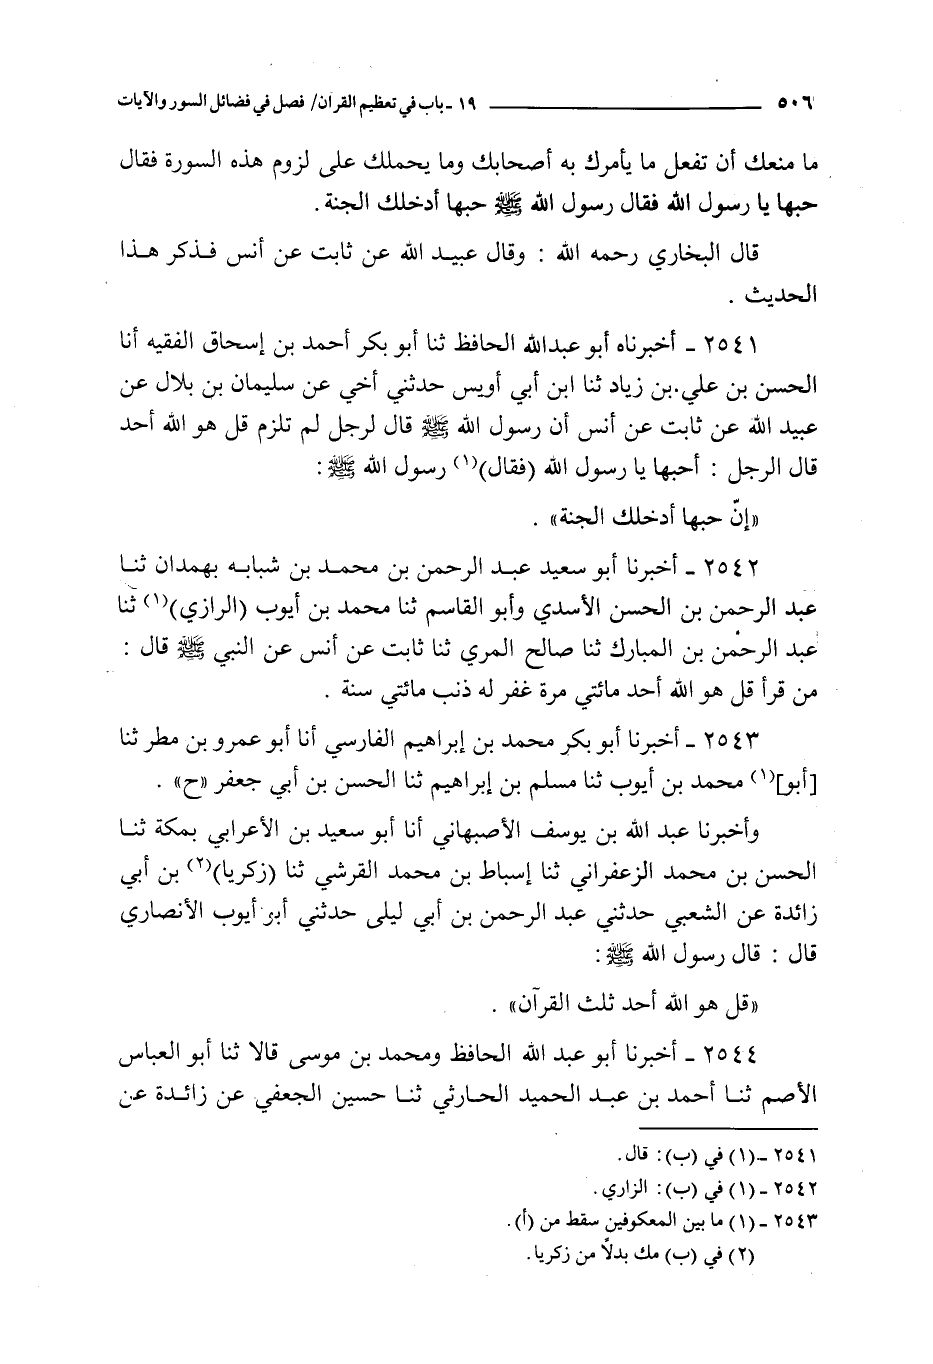 ٥٠٦ ـــــــ ١٩ ـ باب في تعظيم القرآن/ فصل في فضائل السور والآيات
ما منعك أن تفعل ما يأمرك به أصحابك وما يحملك على لزوم هذه السورة فقال
حبها يا رسول الله فقال رسول الله ﷺ حبها أدخلك الجنة .
قال البخاري رحمه الله : وقال عبيد الله عن ثابت عن أنس فذكر هذا
الحديث .
٢٥٤١ ـ أخبرناه أبو عبدالله الحافظ ثنا أبو بكر أحمد بن إسحاق الفقيه أنا
الحسن بن علي بن زياد ثنا ابن أبي أويس حدثني أخي عن سليمان بن بلال عن
عبيد الله عن ثابت عن أنس أن رسول الله ﷺ قال لرجل لم تلزم قل هو الله أحد
قال الرجل : أحبها يا رسول الله (فقال)(١) رسول الله ﷺ :
«إنّ حبها أدخلك الجنة» .
٢٥٤٢ ـ أخبرنا أبو سعيد عبد الرحمن بن محمد بن شبابه بهمدان ثنا
عبد الرحمن بن الحسن الأسدي وأبو القاسم ثنا محمد بن أيوب (الرازي)(١) ثنا
عبد الرحمن بن المبارك ثنا صالح المري ثنا ثابت عن أنس عن النبي ﷺ قال :
من قرأ قل هو الله أحد مائتي مرة غفر له ذنب مائتي سنة .
٢٥٤٣ ـ أخبرنا أبو بكر محمد بن إبراهيم الفارسي أنا أبو عمرو بن مطر ثنا
[أبو](١) محمد بن أيوب ثنا مسلم بن إبراهيم ثنا الحسن بن أبي جعفر «ح» .
وأخبرنا عبد الله بن يوسف الأصبهاني أنا أبو سعيد بن الأعرابي بمكة ثنا
الحسن بن محمد الزعفراني ثنا إسباط بن محمد القرشي ثنا (زكريا)(٢) بن أبي
زائدة عن الشعبي حدثني عبد الرحمن بن أبي ليلى حدثني أبو أيوب الأنصاري
قال : قال رسول الله ﷺ :
«قل هو الله أحد ثلث القرآن» .
٢٥٤٤ ـ أخبرنا أبو عبد الله الحافظ ومحمد بن موسى قالا ثنا أبو العباس
الأصم ثنا أحمد بن عبد الحميد الحارثي ثنا حسين الجعفي عن زائدة عن
٢٥٤١ ـ (١) في (ب): قال.
٢٥٤٢ ـ (١) في (ب): الزاري.
٢٥٤٣ ـ (١) ما بين المعكوفين سقط من (أ).
(٢) في (ب) مك بدلاً من زكريا.